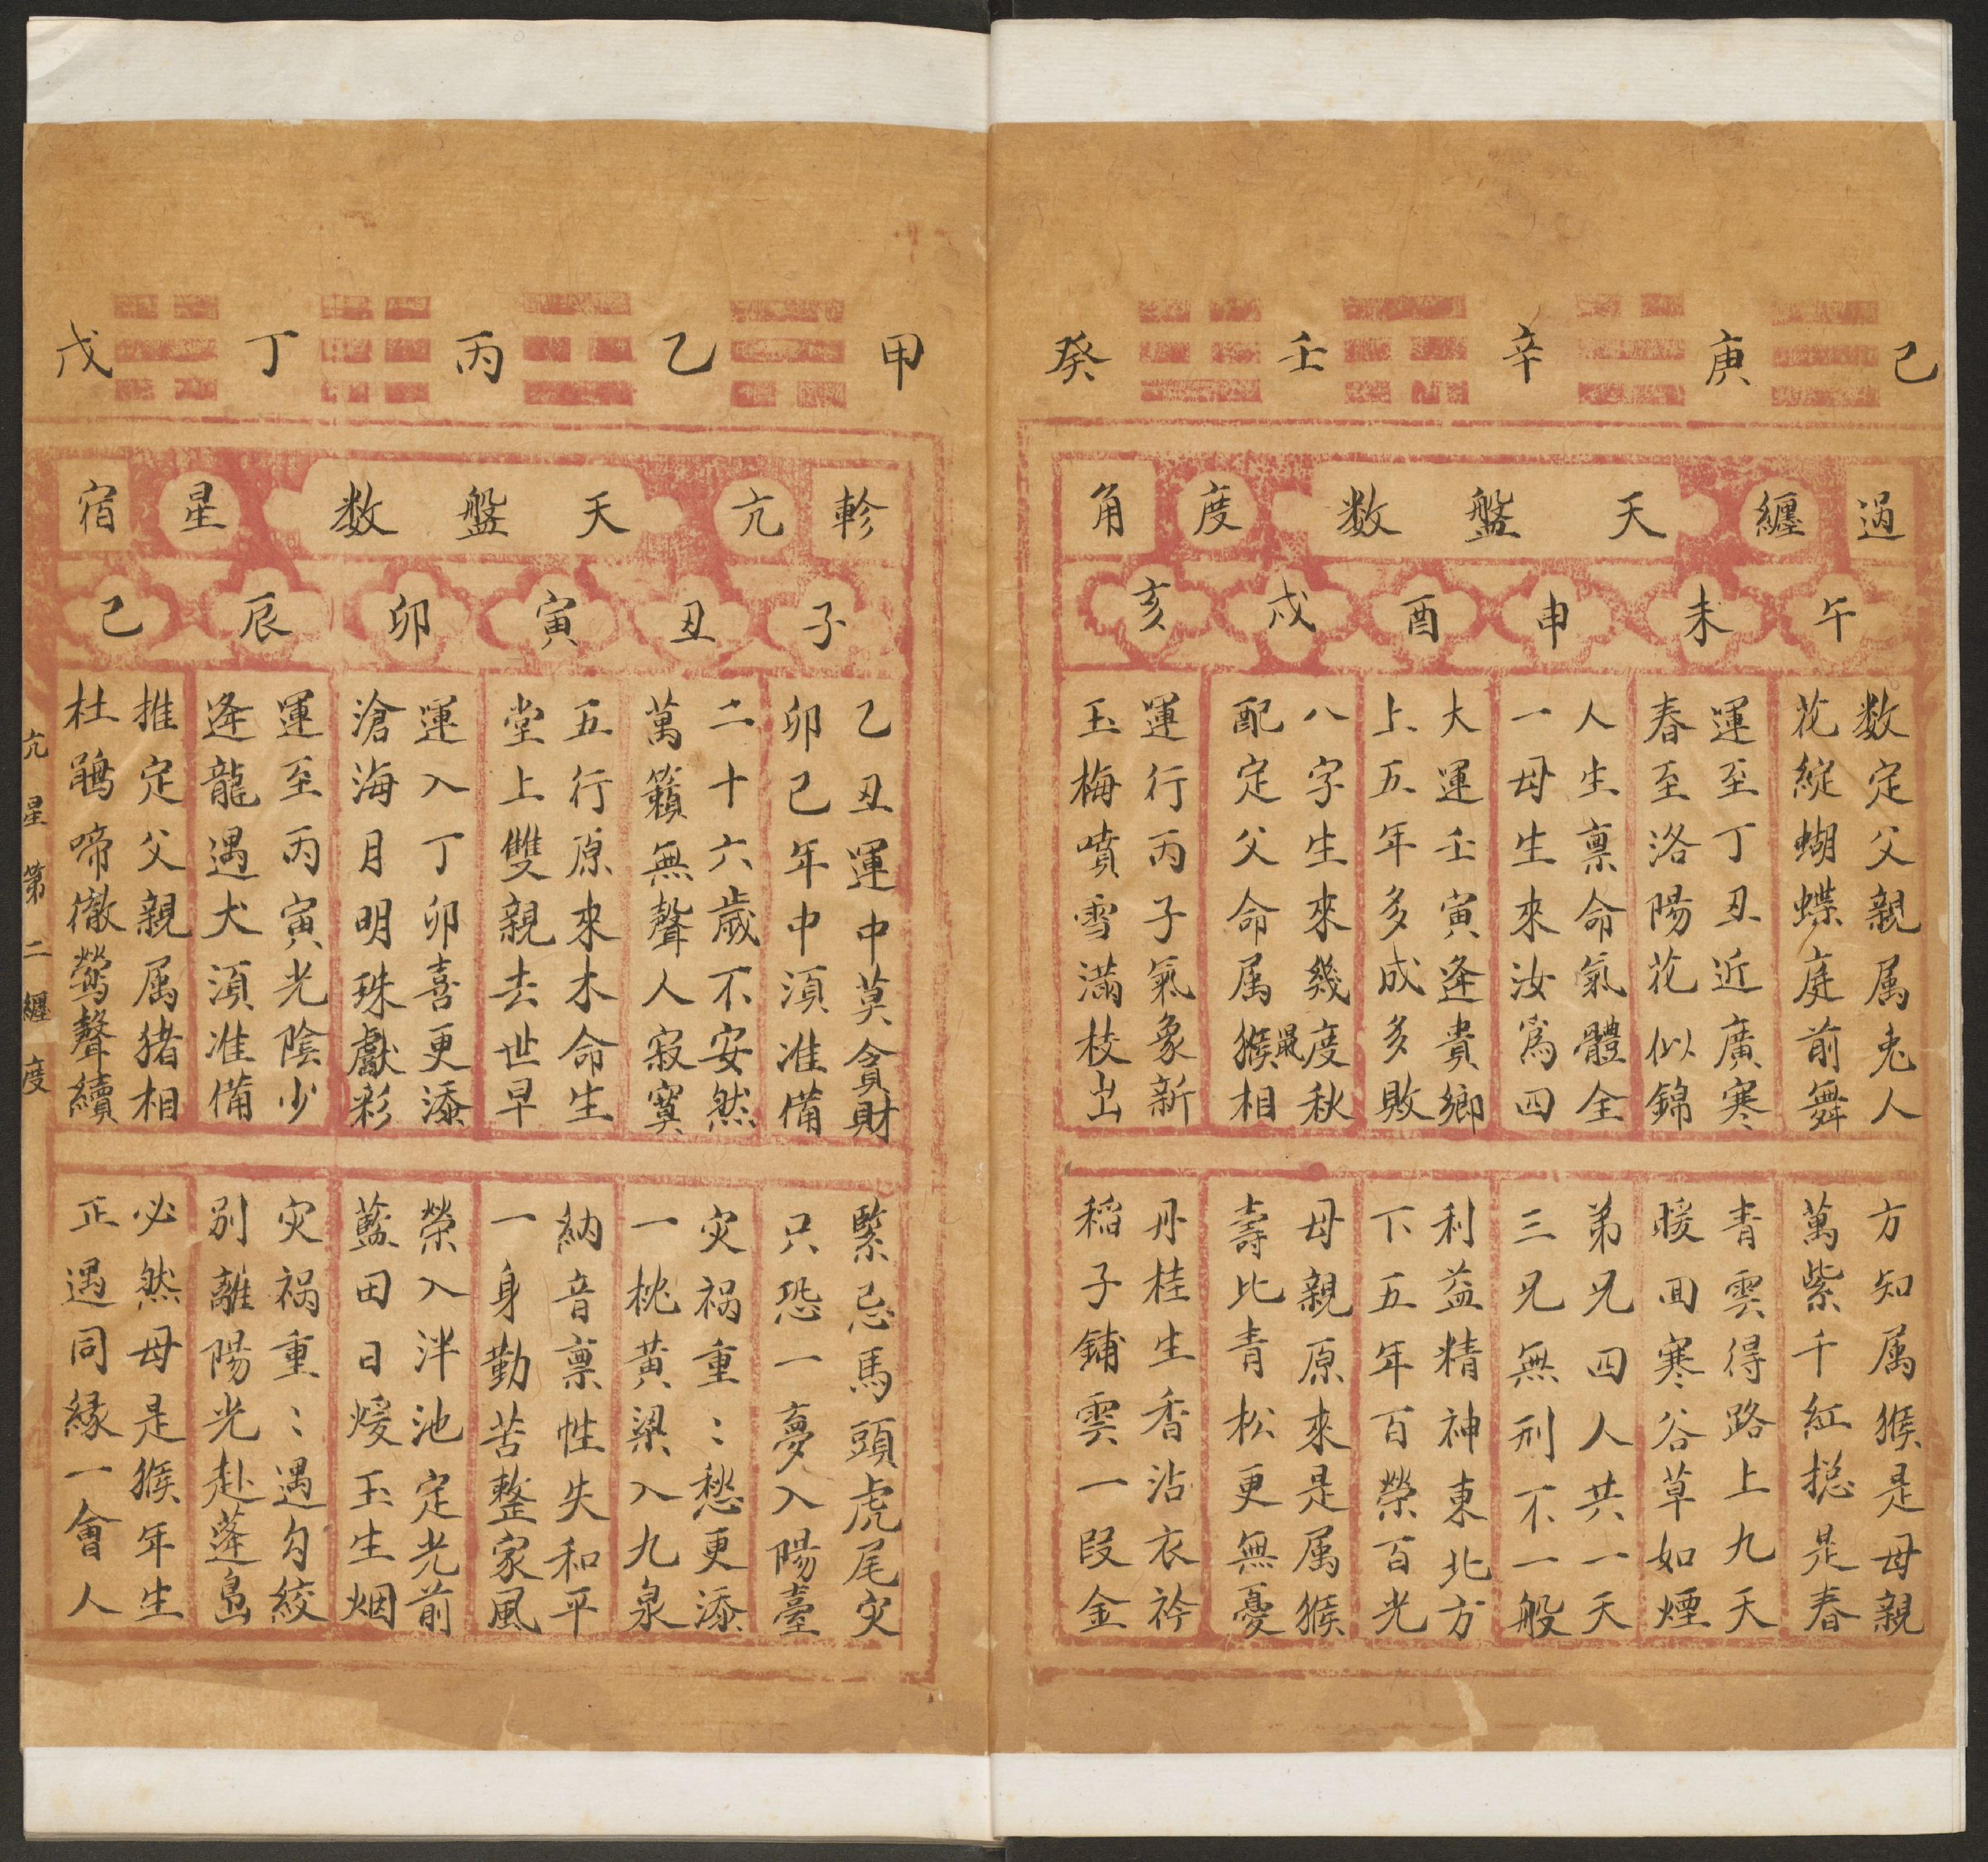 己庚辛壬癸
過纏天盤数度角
午未申酉戌亥
数定父親属兎人
花綻蝴蝶庭前舞
運至丁丑近廣寒
春至洛陽花似錦
人生禀命氣體全
一母生來汝爲四
大運壬寅逢貴鄉
上五年多成多敗
八字生來幾度秋
配定父命属猴最相
運行丙子氣象新
玉梅噴雪滿枝出
方知属猴是母親
萬紫千紅捴是春
青雲得路上九天
暖回寒谷草如煙
弟兄四人共一天
三兄無刑不一般
利益精神東北方
下五年百榮百光
母親原來是属猴
壽比青松更無憂
丹桂生香沾衣衿
稲子鋪雲一段金
甲乙丙丁戊
軫亢天盤数星宿
子丑寅卯辰己
乙丑運中莫貪財
卯己年中湏准備
二十六歲不安然
萬籟無聲人寂寞
五行原來木命生
堂上雙親去世早
運入丁卯喜更添
滄海月明珠獻彩
運至丙寅光陰少
逢龍遇犬湏准備
推定父親属猪相
杜鵑啼徹鶯聲續
緊忌馬頭虎尾灾
只恐一夢入陽臺
灾祸重〻愁更添
一枕黃梁入九泉
納音禀性失和平
一身勤苦整家風
榮入泮池定光前
藍田日煖玉生烟
灾祸重〻遇勾絞
别離陽光赴蓬島
必然母是猴年生
正遇同緣一會人
亢星第二纏度